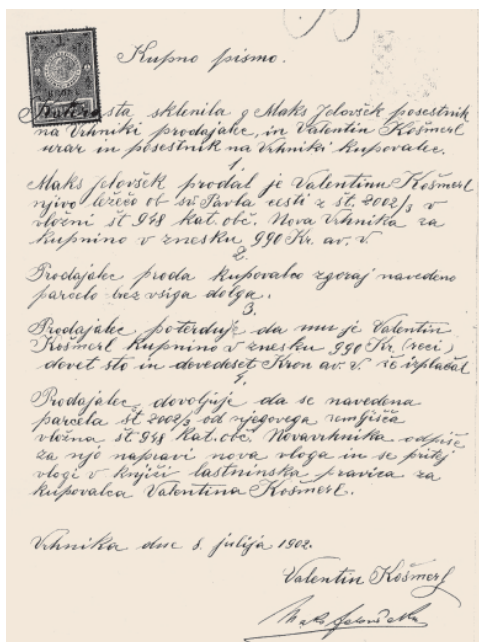 Kupno pismo.
sta sklenila g Maks Jelovšek posestnik
na Vrhniki prodajalec, in Valentin Košmerl
urar in posestnik na Vrhniki kupovalec.
1.
Maks Jelovšek prodal je Valentinu Košmerl
njivo ležečo ob sv. Pavla cesti z št. 2002/3 v
vložni št 948 kat. obč. Nova Vrhnika za
kupnino v znesku 990 Kr. av. v.
2.
Prodajalec proda kupovalco zgoraj navedeno
parcelo brez vsiga dolga.
3.
Prodajalec poterduje da mu je Valentin
Košmerl kupnino v znesku 990 Kr. (reci)
devet sto in devedeset Kron av. v. že izplačal
4.
Prodajalec dovoljuje da se navedena
parcela št 2002/3 od njegovega zemljišča
vložna št 948 Kat. obč. Novavrhnika odpiše
za njo napravi nova vloga in se pritej
vlogi v knjiži lastninska pravica za
kupovalca Valentina Košmerl.
Vrhnika dne 8. julija 1902.
Valentin Košmerl